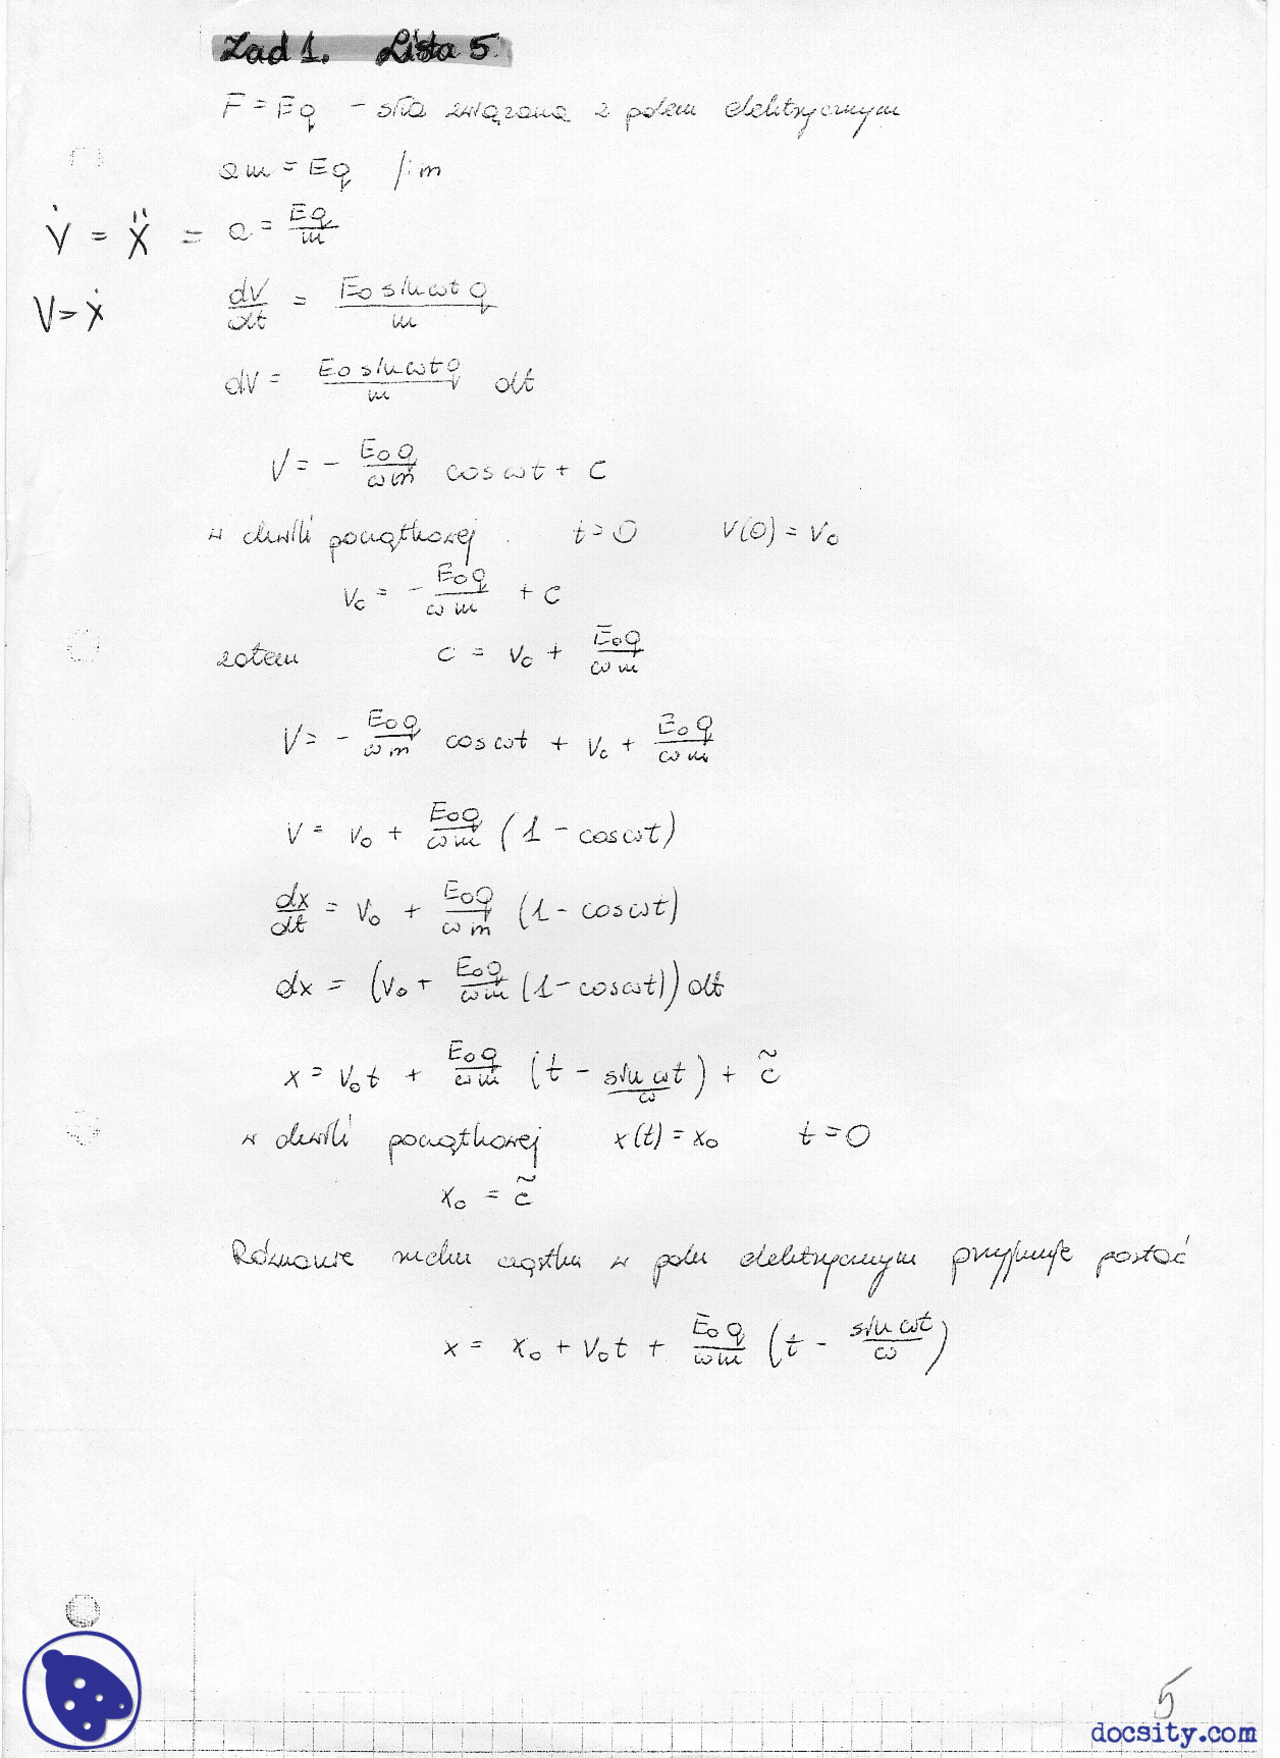 Zad 1. Lista 5
F = Eq - siła związana z polem elektrycznym
am = Eq /:m
V̇ = Ẍ = a = Eq/m
V = Ẋ
dV/dt = E₀ sin ωt q / m
dV = E₀ sin ωt q / m dt
V = - E₀q/ωm cos ωt + C
w chwili początkowej t = 0 V(0) = V₀
V₀ = - E₀q/ωm + C
zatem C = V₀ + E₀q/ωm
V = - E₀q/ωm cos ωt + V₀ + E₀q/ωm
V = V₀ + E₀q/ωm (1 - cos ωt)
dx/dt = V₀ + E₀q/ωm (1 - cos ωt)
dx = (V₀ + E₀q/ωm (1 - cos ωt)) dt
x = V₀t + E₀q/ωm (t - sin ωt/ω) + c̃
w chwili początkowej x(t) = x₀ t = 0
x₀ = c̃
Równanie ruchu cząstki w polu elektrycznym przyjmuje postać
x = x₀ + V₀t + E₀q/ωm (t - sin ωt/ω)
5
docsity.com